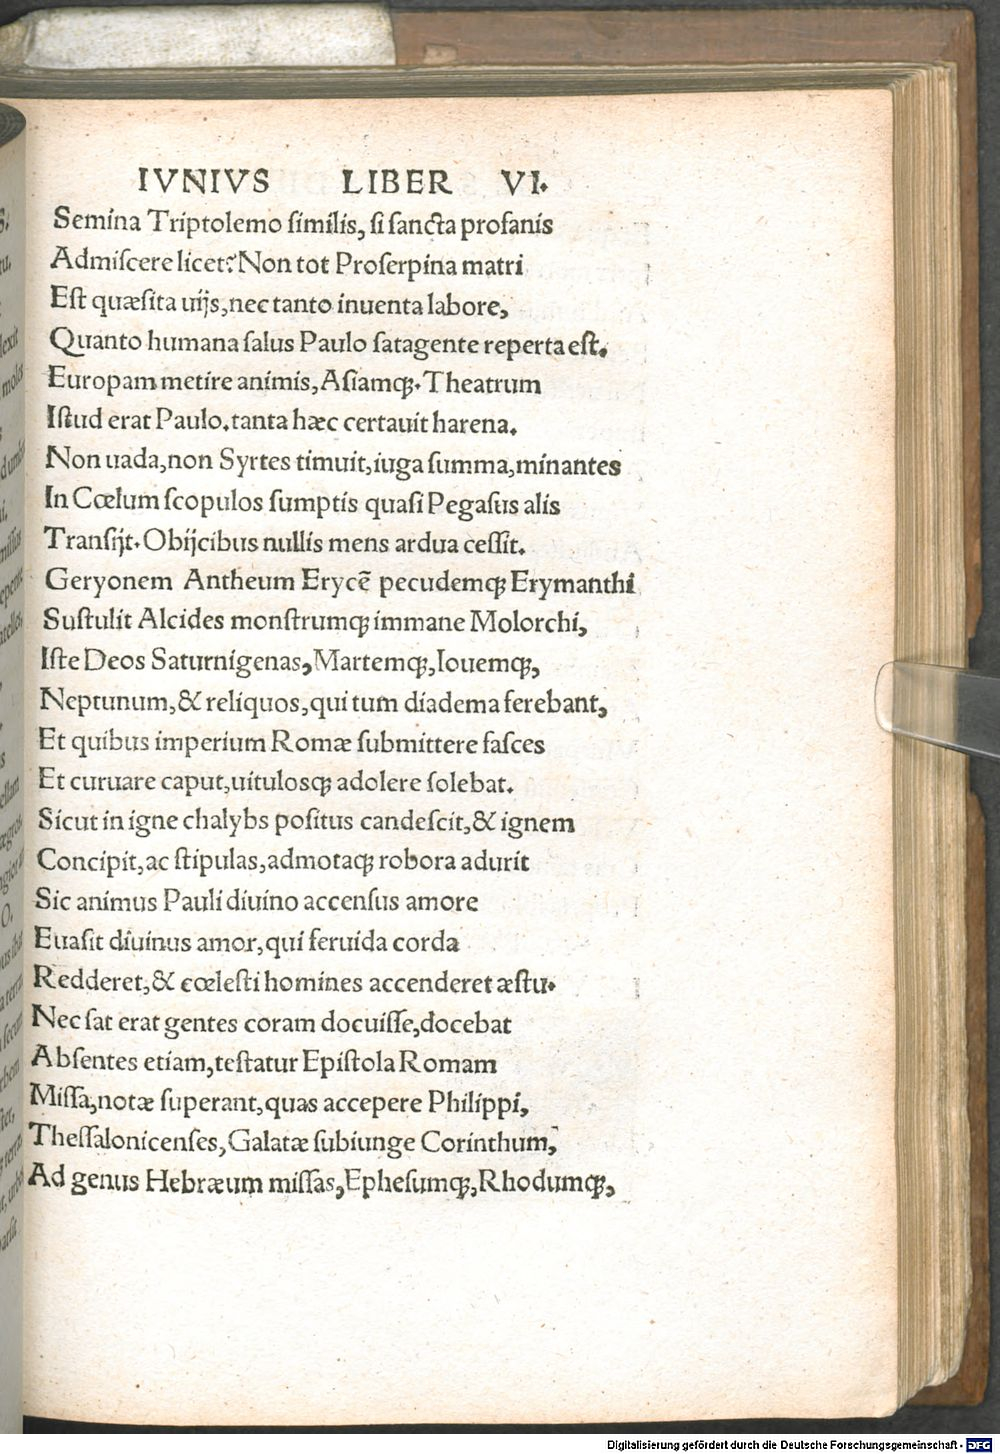 IVNIVS LIBER VI.
Semina Triptolemo ſimilis, ſi ſancta profanis
Admiſcere licet? Non tot Proſerpina matri
Eſt quæſita uijs, nec tanto inuenta labore,
Quanto humana ſalus Paulo ſatagente reperta eſt.
Europam metire animis, Aſiamꝗ. Theatrum
Iſtud erat Paulo. tanta hæc certauit harena.
Non uada, non Syrtes timuit, iuga ſumma, minantes
In Cœlum ſcopulos ſumptis quaſi Pegaſus alis
Tranſijt. Obijcibus nullis mens ardua ceſſit.
Geryonem Antheum Erycē pecudemꝗ Erymanthi
Suſtulit Alcides monſtrumꝗ immane Molorchi,
Iſte Deos Saturnigenas, Martemꝗ, Iouemꝗ,
Neptunum, & reliquos, qui tum diadema ferebant,
Et quibus imperium Romæ ſubmittere faſces
Et curuare caput, uitulosꝗ adolere ſolebat.
Sicut in igne chalybs poſitus candeſcit, & ignem
Concipit, ac ſtipulas, admotaꝗ robora adurit
Sic animus Pauli diuino accenſus amore
Euaſit diuinus amor, qui feruida corda
Redderet, & cœleſti homines accenderet æſtu.
Nec ſat erat gentes coram docuiſſe, docebat
Abſentes etiam, teſtatur Epiſtola Romam
Miſſa, notæ ſuperant, quas accepere Philippi,
Theſſalonicenſes, Galatæ ſubiunge Corinthum,
Ad genus Hebræum miſſas, Epheſumꝗ, Rhodumꝗ,
Digitalisierung gefördert durch die Deutsche Forschungsgemeinschaft - DFG